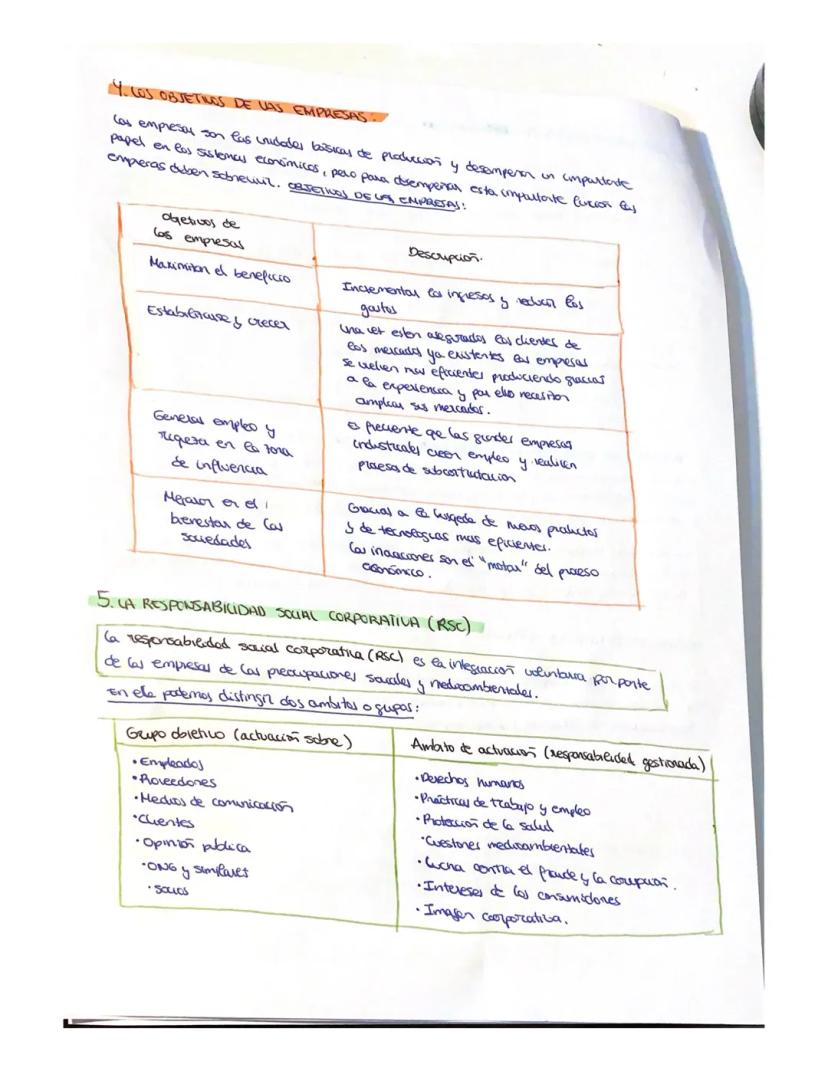 4. LOS OBJETIVOS DE LAS EMPRESAS.
Las empresas son las unidades básicas de producción y desempeñan un importante
papel en los sistemas económicos, pero para desempeñar esta importante función las
empresas deben sobrevivir. OBJETIVOS DE LAS EMPRESAS:
Objetivos de
las empresas
Descripción.
Maximizan el beneficio
Incrementar los ingresos y reducir los
gastos
Estabilizarse y crecer
Una vez estén asegurados los clientes de
los mercados ya existentes las empresas
se vuelven mas eficientes produciendo gracias
a la experiencia y por ello necesitan
ampliar sus mercados.
Generar empleo y
riqueza en la zona
de influencia
es frecuente qe las grandes empresas
industriales creen empleo y realicen
procesos de subcontratación
Mejorar en el
bienestar de las
sociedades
Gracias a la busqeda de nuevos productos
y de tecnologías mas eficientes.
Las innovaciones son el "motor" del proceso
económico.
5. LA RESPONSABILIDAD SOCIAL CORPORATIVA (RSC)
La responsabilidad social corporativa (RSC) es la integración voluntaria por parte
de las empresas de las preocupaciones sociales y medioambientales.
En ella podemos distinguir dos ambitos o grupos:
Grupo objetivo (actuación sobre)
• Empleados
• Proveedores
• Medios de comunicación
• Clientes
• Opinión pública
• ONG y similares
• Socios
Ambito de actuación (responsabilidad gestionada)
• Derechos humanos
• Prácticas de trabajo y empleo
• Protección de la salud
• Cuestiones medioambientales
• Lucha contra el fraude y la corrupción.
• Intereses de los consumidores
• Imagen corporativa.